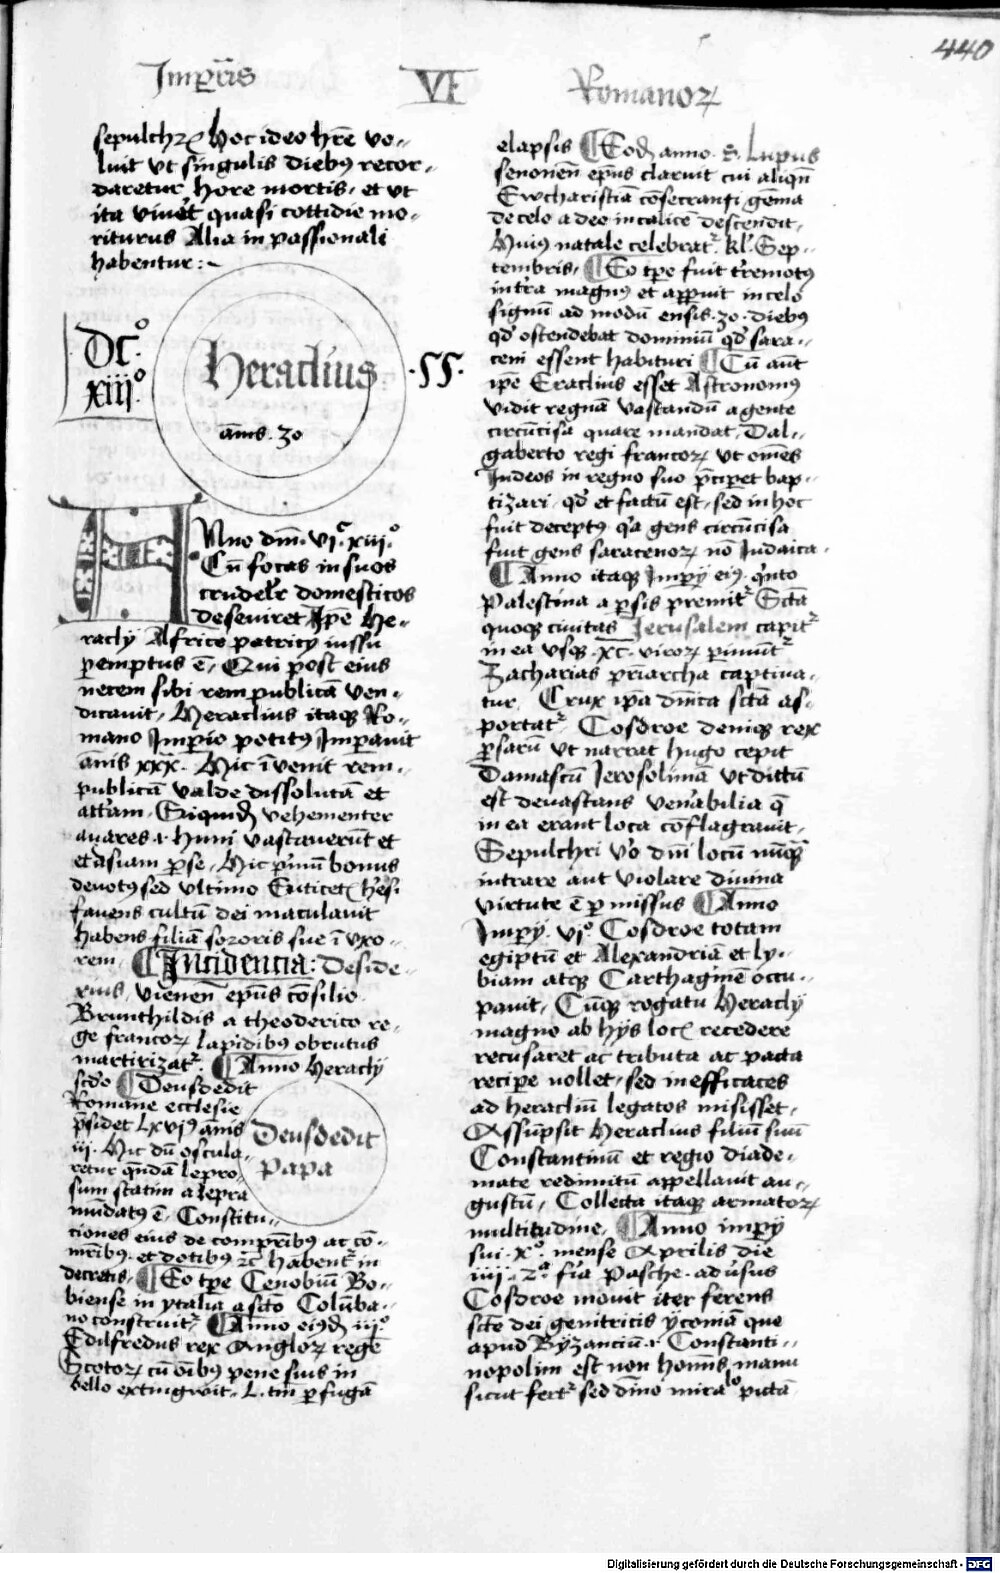 440
Imperatoris VI Romanorum
sepulchrum hoc ideo habere vo-
luit ut singulis diebus recor-
daretur hore mortis et ut
ita viveret quasi cottidie mo-
riturus Alia in passionali
habentur :~
DCo
xiijo
Heraclius
annis . 30
.55.
Anno dni vi c xiii o
Cum focas in suos
crudeliter domesticos
deseviret Ipse He-
raclij Africe patricij iussu
peremptus e, Qui post eius
necem sibi rem publicam ven-
dicavit, Heraclius itaque Ro-
mano Imperio potitus Imperavit
annis xxx. Hic invenit rem-
publicam valde dissolutam et
attritam, Siquidem vehementer
avares et huni vastaverunt et
et asiam perse, Hic primum bonus
devotus sed ultimo Euticetis heresi
favens cultum dei maculavit
habens filiam sororis sue in uxo-
rem ¶ Incidencia: Deside-
rius, viennensis episcopus consilio
Brunthildis a theoderico re-
ge francorum lapidibus obrutus
martirizatur ¶ Anno Heraclij
secundo ¶ Deusdedit
Romane ecclesie
presidet lxvius annis
iij. Hic dum oscula-
retur quendam lepro-
sum statim a lepra
mundatus e, Constitu-
ciones eius de compatribus ac co-
matribus et dotibus etc habentur in
decretis, ¶ Eo tempore Cenobium Bo-
biense in ytalia a sancto Columba-
no construitur ¶ Anno eiusdem iijo
Edilfredus rex Anglorum regem
Scotorum cum omnibus pene suis in
bello extingwit, L. tamen per fugam
Deusdedit
papa
elapsis ¶ Eodem anno S. Lupus
senonensis episcopus claruit cui aliquando
Ewcharistiam consecranti gemma
de celo a deo in calicem descendit,
Huius natale celebratur kl' Sep-
tembris, ¶ Eo tempore fuit terremotus
intra magnus et apparuit in celo
signum ad modum ensis 30 diebus
quod ostendebat dominium quod sara-
ceni essent habituri ¶ Cum autem
ipse Eraclius esset Astronomus
vidit regnum vastandum a gente
circumcisa quare mandat Dal-
gaberto regi francorum ut omnes
Judeos in regno suo preciperet bap-
tizari, quod et factum est, sed in hoc
fuit deceptus quia gens circumcisa
fuit gens saracenorum non Judaica.
¶ Anno itaque Imperij eius quinto
Palestina a persis premitur Sancta
quoque civitas Jerusalem capitur
in ea usque xc virorum perimuntur
Zacharias patriarcha captiva-
tur Crux ipsa dominica sancta as-
portatur Cosdroe denique rex
persarum ut narrat hugo cepit
Damascum Ierosolimam ut dictum
est devastans venerabilia que
in ea erant loca conflagravit,
Sepulchri vero domini locum nunquam
intrare aut violare divina
virtute e permissus ¶ Anno
Imperij vjo Cosdroe totam
egiptum et Alexandriam et ly-
biam atque Carthaginem occu-
pavit, Cumque rogatu Heraclij
magno ab hijs locis recedere
recusaret ac tributa ac pacta
recipere nollet, sed inefficaces
ad heraclium legatos misisset,
Assumpsit Heraclius filium suum
Constantinum et regio diade-
mate redimitum appellavit au-
gustum, Collecta itaque armatorum
multitudine, ¶ Anno imperij
sui xo mense Aprilis die
iiij 2a feria Pasche adversus
Cosdroe movit iter ferens
sancte dei genitricis yconam que
apud Byzancium et Constanti-
nopolim est non hominis manu
sicut fertur sed divino miraculo pictam
Digitalisierung gefördert durch die Deutsche Forschungsgemeinschaft - DFG